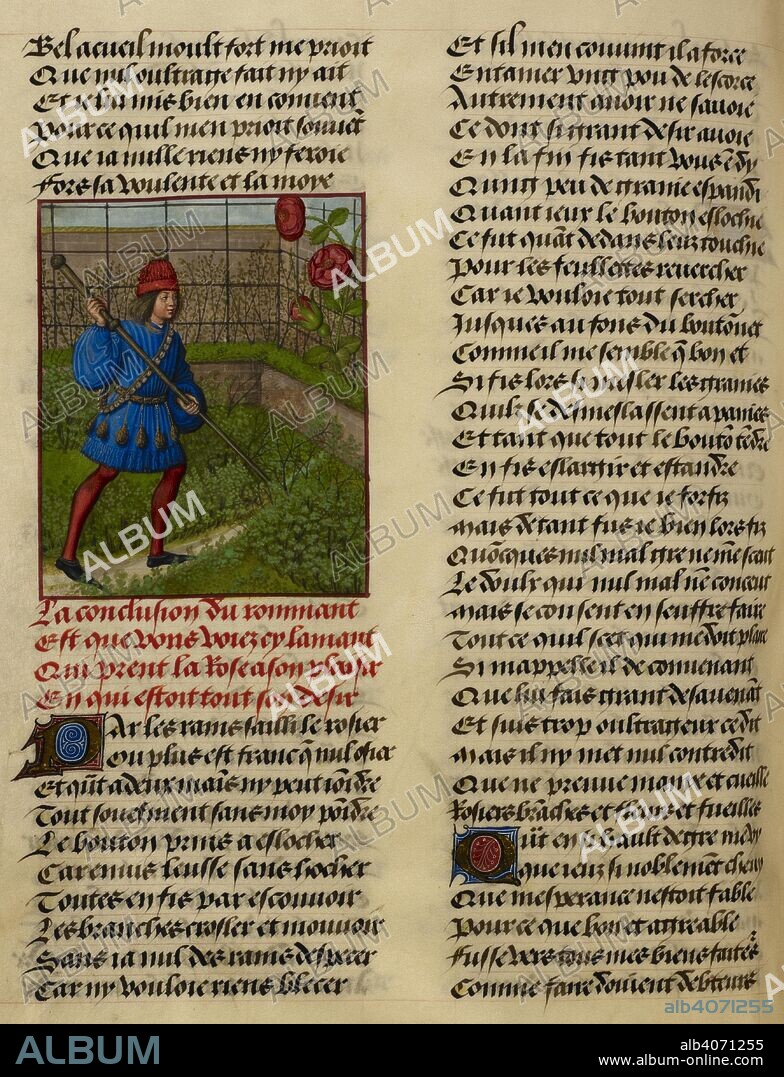 Bel acueil moult fort me prioit
Que nul oultraige fait ny ait
Et ie lui mis bien en couuent
Pour ce quil men prioit souuēt
Que ia nulle riens ny feroie
Fors sa voulente et la moye
La conclusion du rommant
Est que vous voiez cy lamant
Qui prent la Rose a son plesir
En qui estoit tout son desir
Par les rains saisi le rosier
Ou plus est franc q̄ nul osier
Et q̄nt a deux mains ny peut ioīdre
Tout souefment sans moy poīdre
Le bouton prins a eslochier
Car enuis leusse sans hocher
Toutes en fis par escouuoir
Les branches crosler et mouuoir
Sans ia nul des rains despecer
Car ny vouloie riens blecer
Et sil men couuint il a force
Entamer vng pou de lescorce
Autrement auoir ne sauoie
Ce dont si grant desir auoie
En la fin fis tant vous ē dy
Quung peu de graine espandi
Quant ieux le bouton eslochie
Ce fut quāt dedans leuz touchie
Pour les feullettes reuercher
Car ie vouloie tout sercher
Iusques au fons du boutonet
Comme il me semble q̄ bon et
Si fis lors si mesler les graines
Quilz se desmeslassent a paines
Et tant que tout le boutō tēdre
En fis eslargir et estandre
Ce fut tout ce que ie forfiz
Mais de tant fus ie bien lors fiz
Quōcques nul mal gre ne me scut
Le doulx qui nul mal nē concent
Mais se consent en seuffre faire
Tout ce quil scet qui me doit plaire
Si mappelle il de conuenant
Que lui fais grant desauenāt
Et suis trop oultrageux ce dit
Mais il ny met nul contredit
Que ne preuue manie et cueille
Rosiers brāches et fleurs et fueilles
Quāt en si hault degre me vy
Que ieuz si noblemēt cheuy
Que mesperance nestoit fable
Pour ce que bon et agreable
Fusse vers tous mes bienfaitēs
Comme faire doiuent debteurs
alb4071255
ALBUM
alb4071255
www.album-online.com